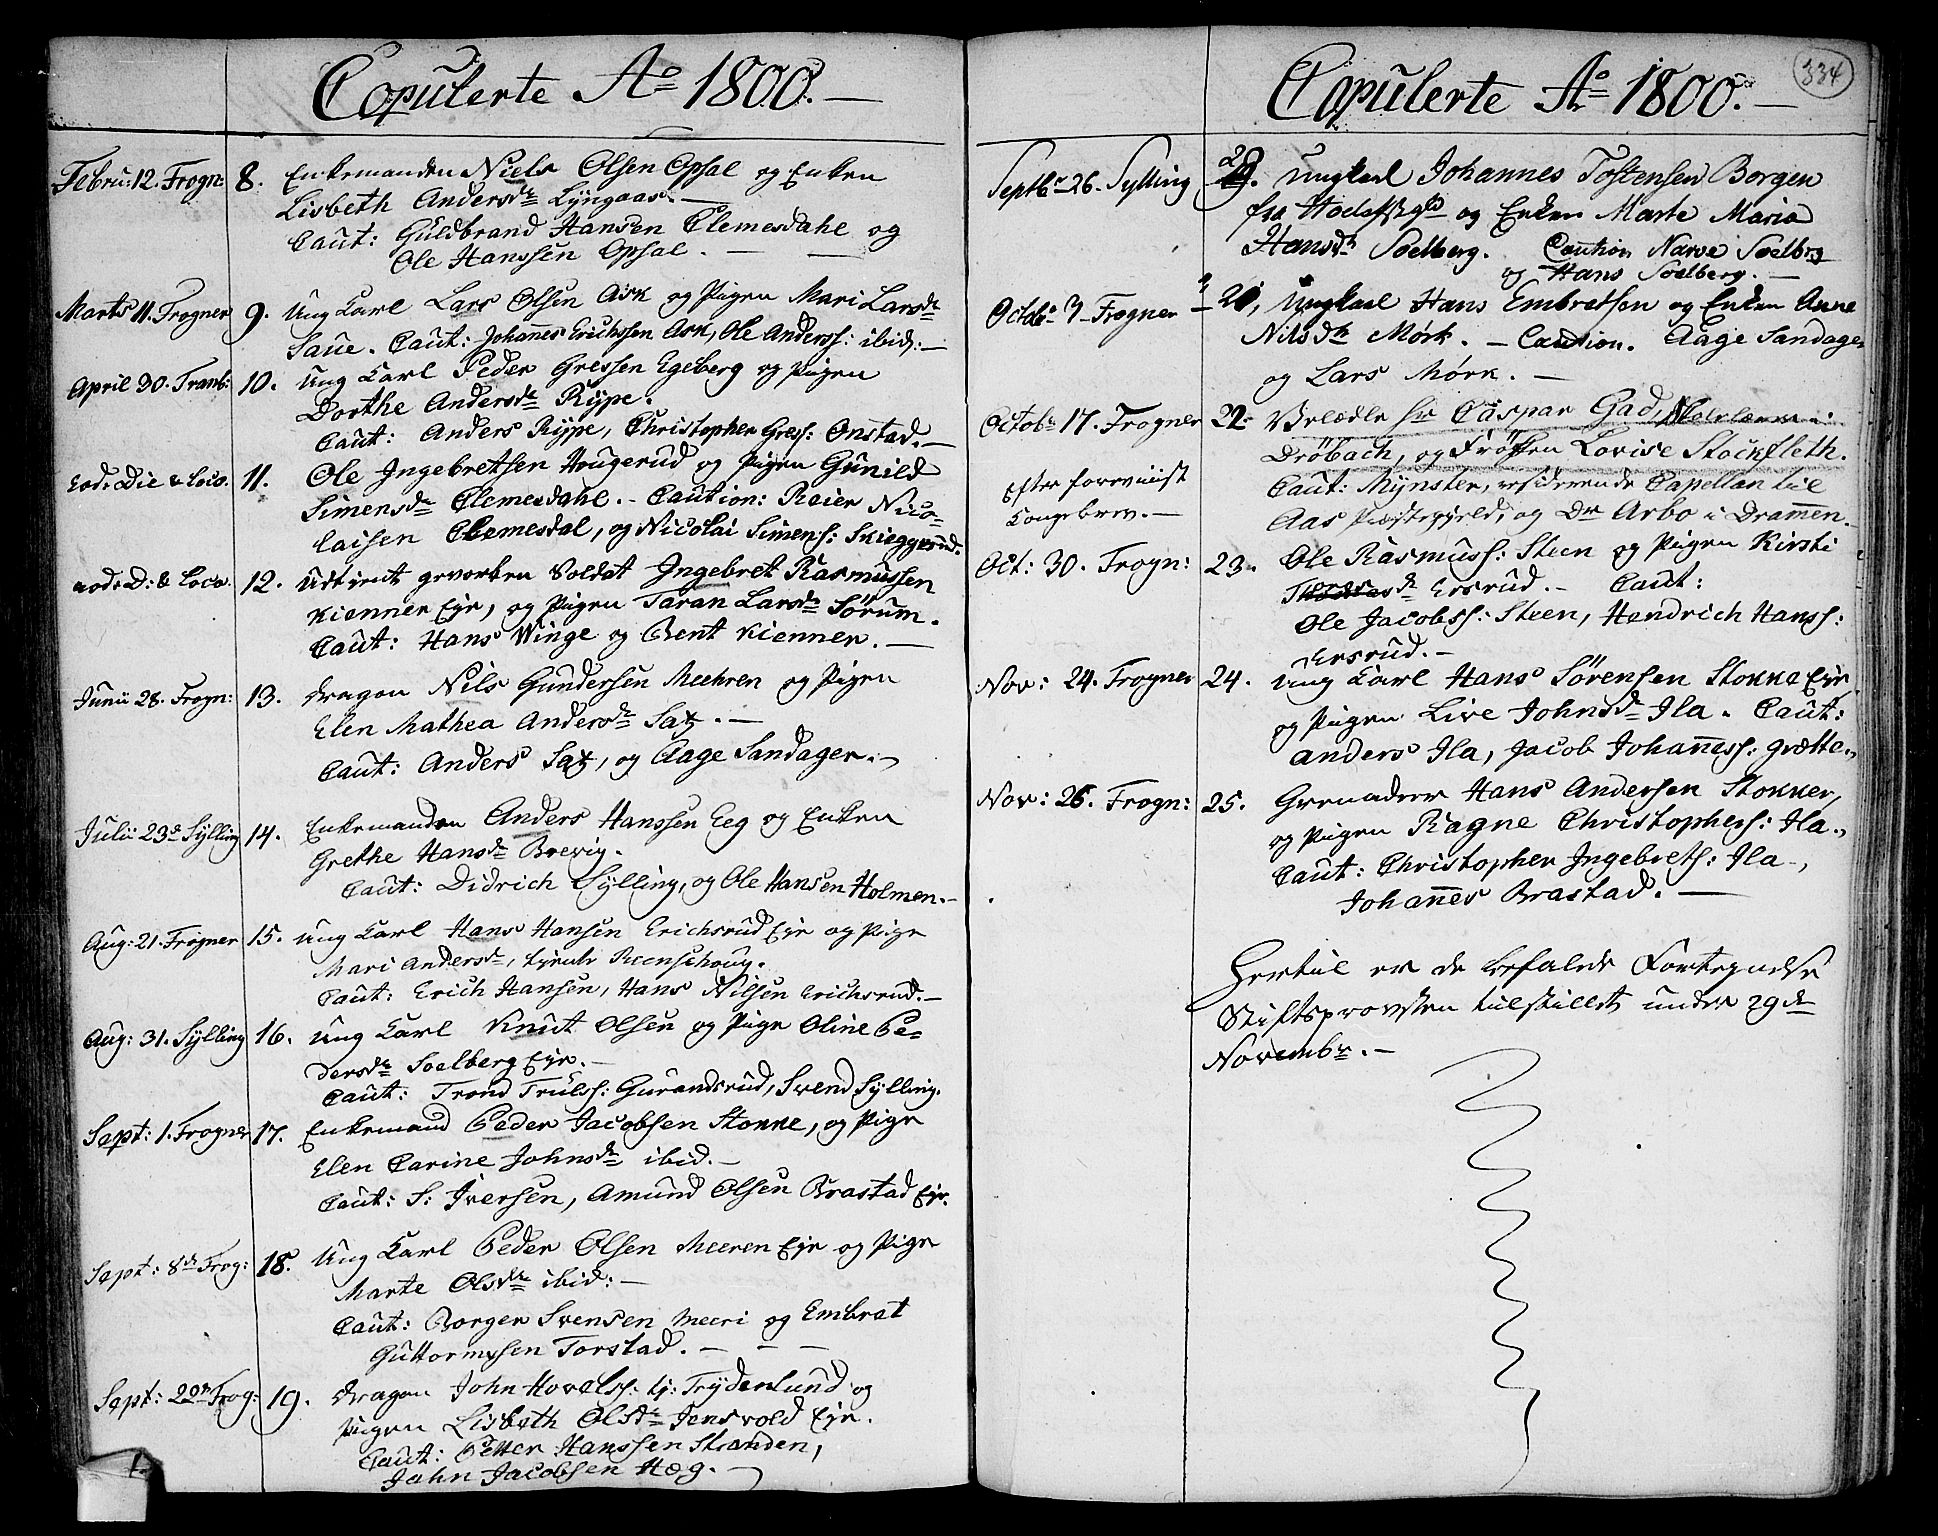 Copulerte Ao 1800.
Febru: 12. Frogn: 8. Enkemanden Niels Olsen Opsal og Enken
Lisbeth Andersdr Lyngaas.
Caut: Guldbrand Hansen Clemesdahl og
Ole Hanssen Opsal.
Marts 11. Frogner 9. Ung Karl Lars Olsen Ask og Pigen Mari Larsdr
Saue. Caut: Johannes Erichssen Ask, Ole Anderss: ibid:
April 30. Tranb: 10. Ung Karl Peder Gressen Egeberg og Pigen
Dorthe Andersdr Rype.
Caut: Anders Rype, Christopher Gress: Onstad.
Eod: Die & Loco. 11. Ole Ingebretsen Hougerud og Pigen Gunild
Simensdr Clemesdahl. Caution: Reier Nico-
laisen Clemesdal, og Nicolai Simens: Skieggerud.
Eod: D: & Loco. 12. Udtient geworben Soldat Ingebret Rasmussen
Kienner Eje, og Pigen Taran Larsdr Sørum.
Caut: Hans Winge og Bent Kienner.
Junii 28. Frogn: 13. Dragon Nils Gundersen Meehren og Pigen
Elen Mathea Andersdr Sax.
Caut: Anders Sax, og Aage Sandager.
Julii 23de Sylling 14. Enkemanden Anders Hanssen Eeg og Enken
Grethe Hansdr Brevig.
Caut: Didrich Sylling, og Ole Hansen Holmen.
Aug: 21. Frogner 15. Ung Karl Hans Hansen Erichsrud Eje og Pige
Mari Andersdr, tjente Reenschoug.
Caut: Erich Hansen, Hans Nilsen Erichsrud.
Aug: 31. Sylling 16. Ung Karl Knut Olsen og Pige Oline Pe-
dersdr Soelberg Eje.
Caut: Trond Trulss: Gurandsrud, Svend Sylling.
Sept: 1. Frogner 17. Enkemand Peder Jacobsen Stokke, og Pige
Elen Carine Johnsdr ibid.
Caut: S: Iversen, Amund Olsen Brastad Eje.
Sept: 8de Frog: 18. Ung Karl Peder Olsen Meeren Eje og Pige
Marte Olsdr ibid:
Caut: Borger Svensen Meeri og Embret
Guttormssen Torstad.
Sept: 29de Frog: 19. Dragon John Hovelss: tj: Trydenlund og
Pigen Lisbeth Olsdr Jensvold Eje.
Caut: Petter Hanssen Stranden,
John Jacobsen Hæg.
334
Copulerte Ao 1800.
Septbr 26. Sylling 20. Ungkarl Johannes Tostensen Borgen
fra og Enken Marte Maria
Hansdr Soelberg. Caution Narve Soelbrg
og Hans Soelberg.
Octobr 3. Frogner 21, Ungkarl Hans Embretsen og Enken Anne
Nilsdr Mørk. Caution. Aage Sandager
og Lars Mørk.
Octobr 17. Frogner 22. Velædle Hr Caspar Gad,
Drøbach, og Frøken Lovise Stockfleth.
Efter foreviist
Kongebrev.
Caut: Mynster, residerende Capellan til
Aas Præstegjeld, og Dr Arbo i Drammen.
Oct: 30. Frogn: 23. Ole Rasmuss: Steen og Pigen Kirsti
Ersrud. Caut:
Ole Jacobss: Steen, Hendrich Hanss:
Ersrud.
Nov: 24. Frogner 24. Ung Karl Hans Sørensen Stokke Eje
og Pigen Live Johnsdr Ila. Caut:
Anders Ila, Jacob Johanness: Grøtte.
Nov: 26. Frogn: 25. Grenadeer Hans Andersen Stokker,
og Pigen Ragne Christophers: Ila.
Caut: Christopher Ingebrets: Ila,
Johannes Brastad.
Hertil er de befalede Fortegnelse
Stiftsprovsten tilstillet under 29de
Novembr.